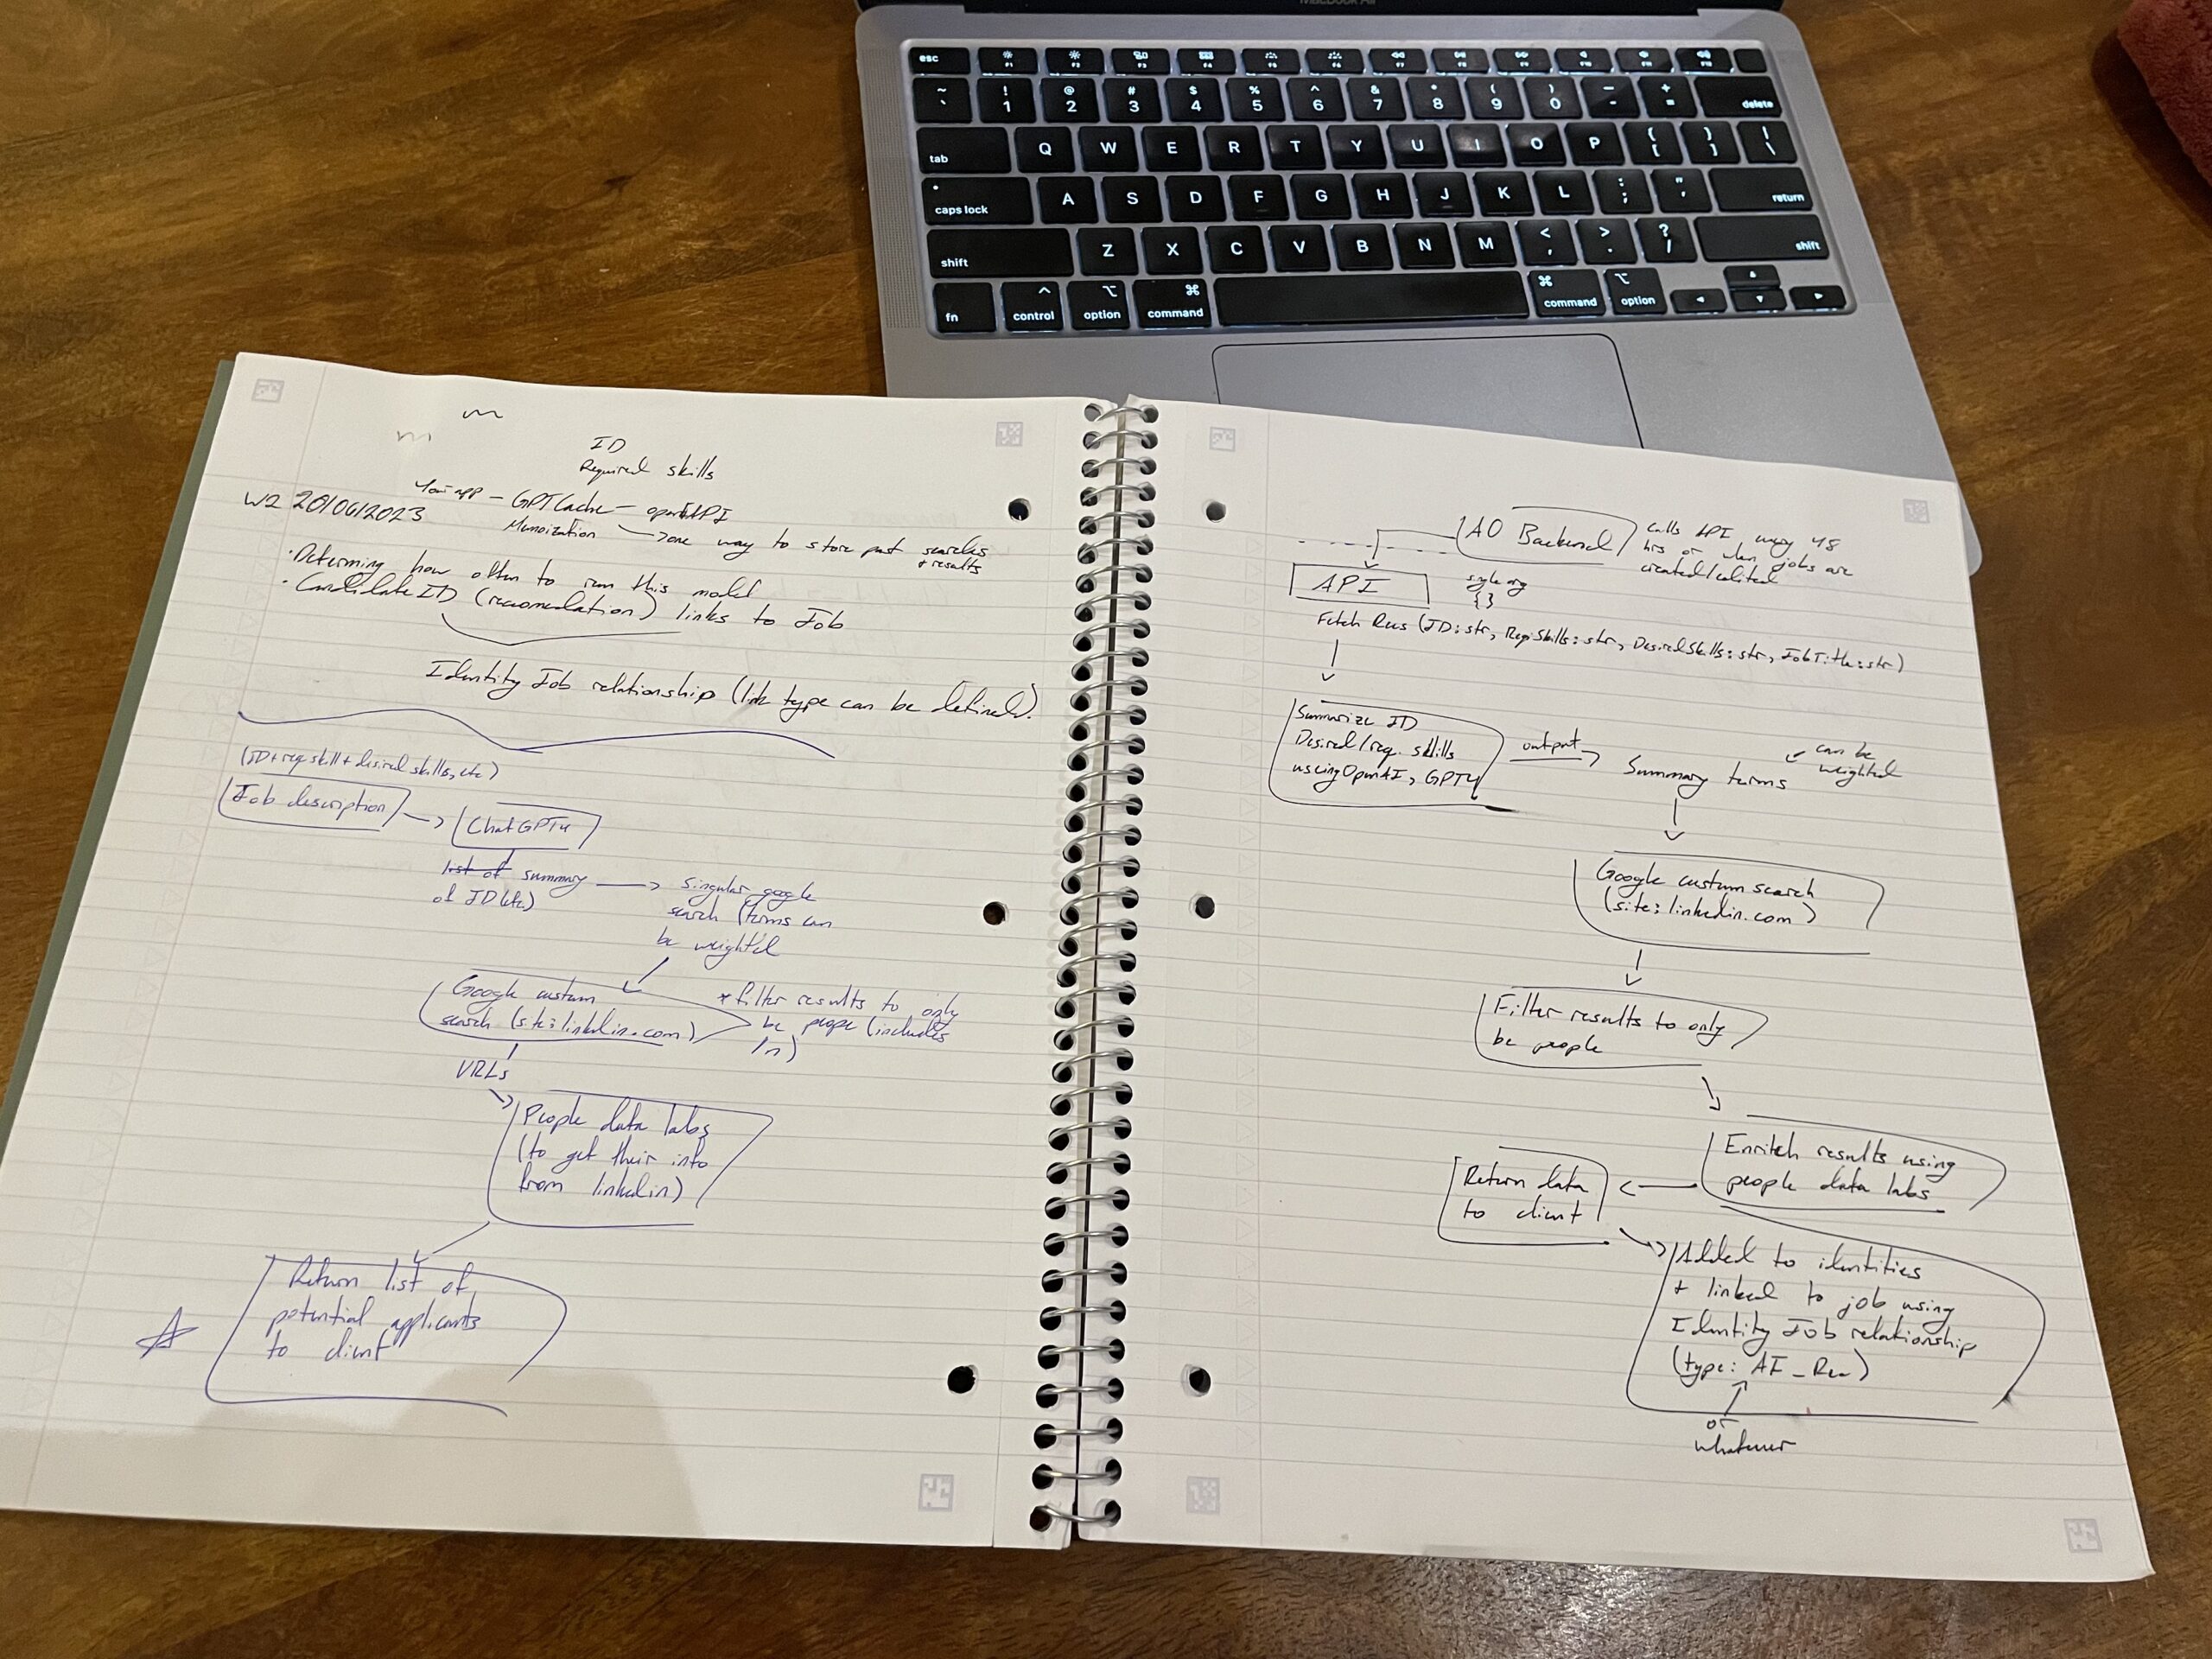 MacBook Air
esc F1 F2 F3 F4 F5 F6 F7 F8 F9 F10 F11 F12
~ ` ! 1 @ 2 # 3 $ 4 % 5 ^ 6 & 7 * 8 ( 9 ) 0 _ - + = delete
tab Q W E R T Y U I O P { [ } ] | \
caps lock A S D F G H J K L : ; " ' return
shift Z X C V B N M < , > . ? / shift
fn control option command command option
JD
Required skills
Your app - GPTCache - openAI API
W2 20/06/2023
Memoization → one way to store past searches
+ results
· Determing how often to run this model
· CandidateID (recomendation) links to Job
Identity Job relationship (link type can be defined).
(JD + req skill + desired skills, etc)
Job description → ChatGPT4
list of summary
of JD (etc)
→ Singular google
search (terms can
be weighted
Google custom
search (site:linkedin.com)
* filter results to only
be peope (includes
/n)
URLs
People data labs
(to get their info
from linkedin)
Return list of
potential applicants
to client
AO Backend
Calls API every 48
hrs or when jobs are
created/edited
API
single org
{}
Fetch Recs (JD: str, ReqSkills: str, DesiredSkills: str, JobTitle: str)
Summarize JD
Desired/req. skills
uscing OpenAI, GPT4
output →
Summary terms
can be
weighted
Google custum search
(site: linkedin.com)
Filter results to only
be people
Enritch results using
people data labs
Return data
to client
Added to identities
+ linked to job using
Identity Job relationship
(type: AI_Rec)
or
whatever